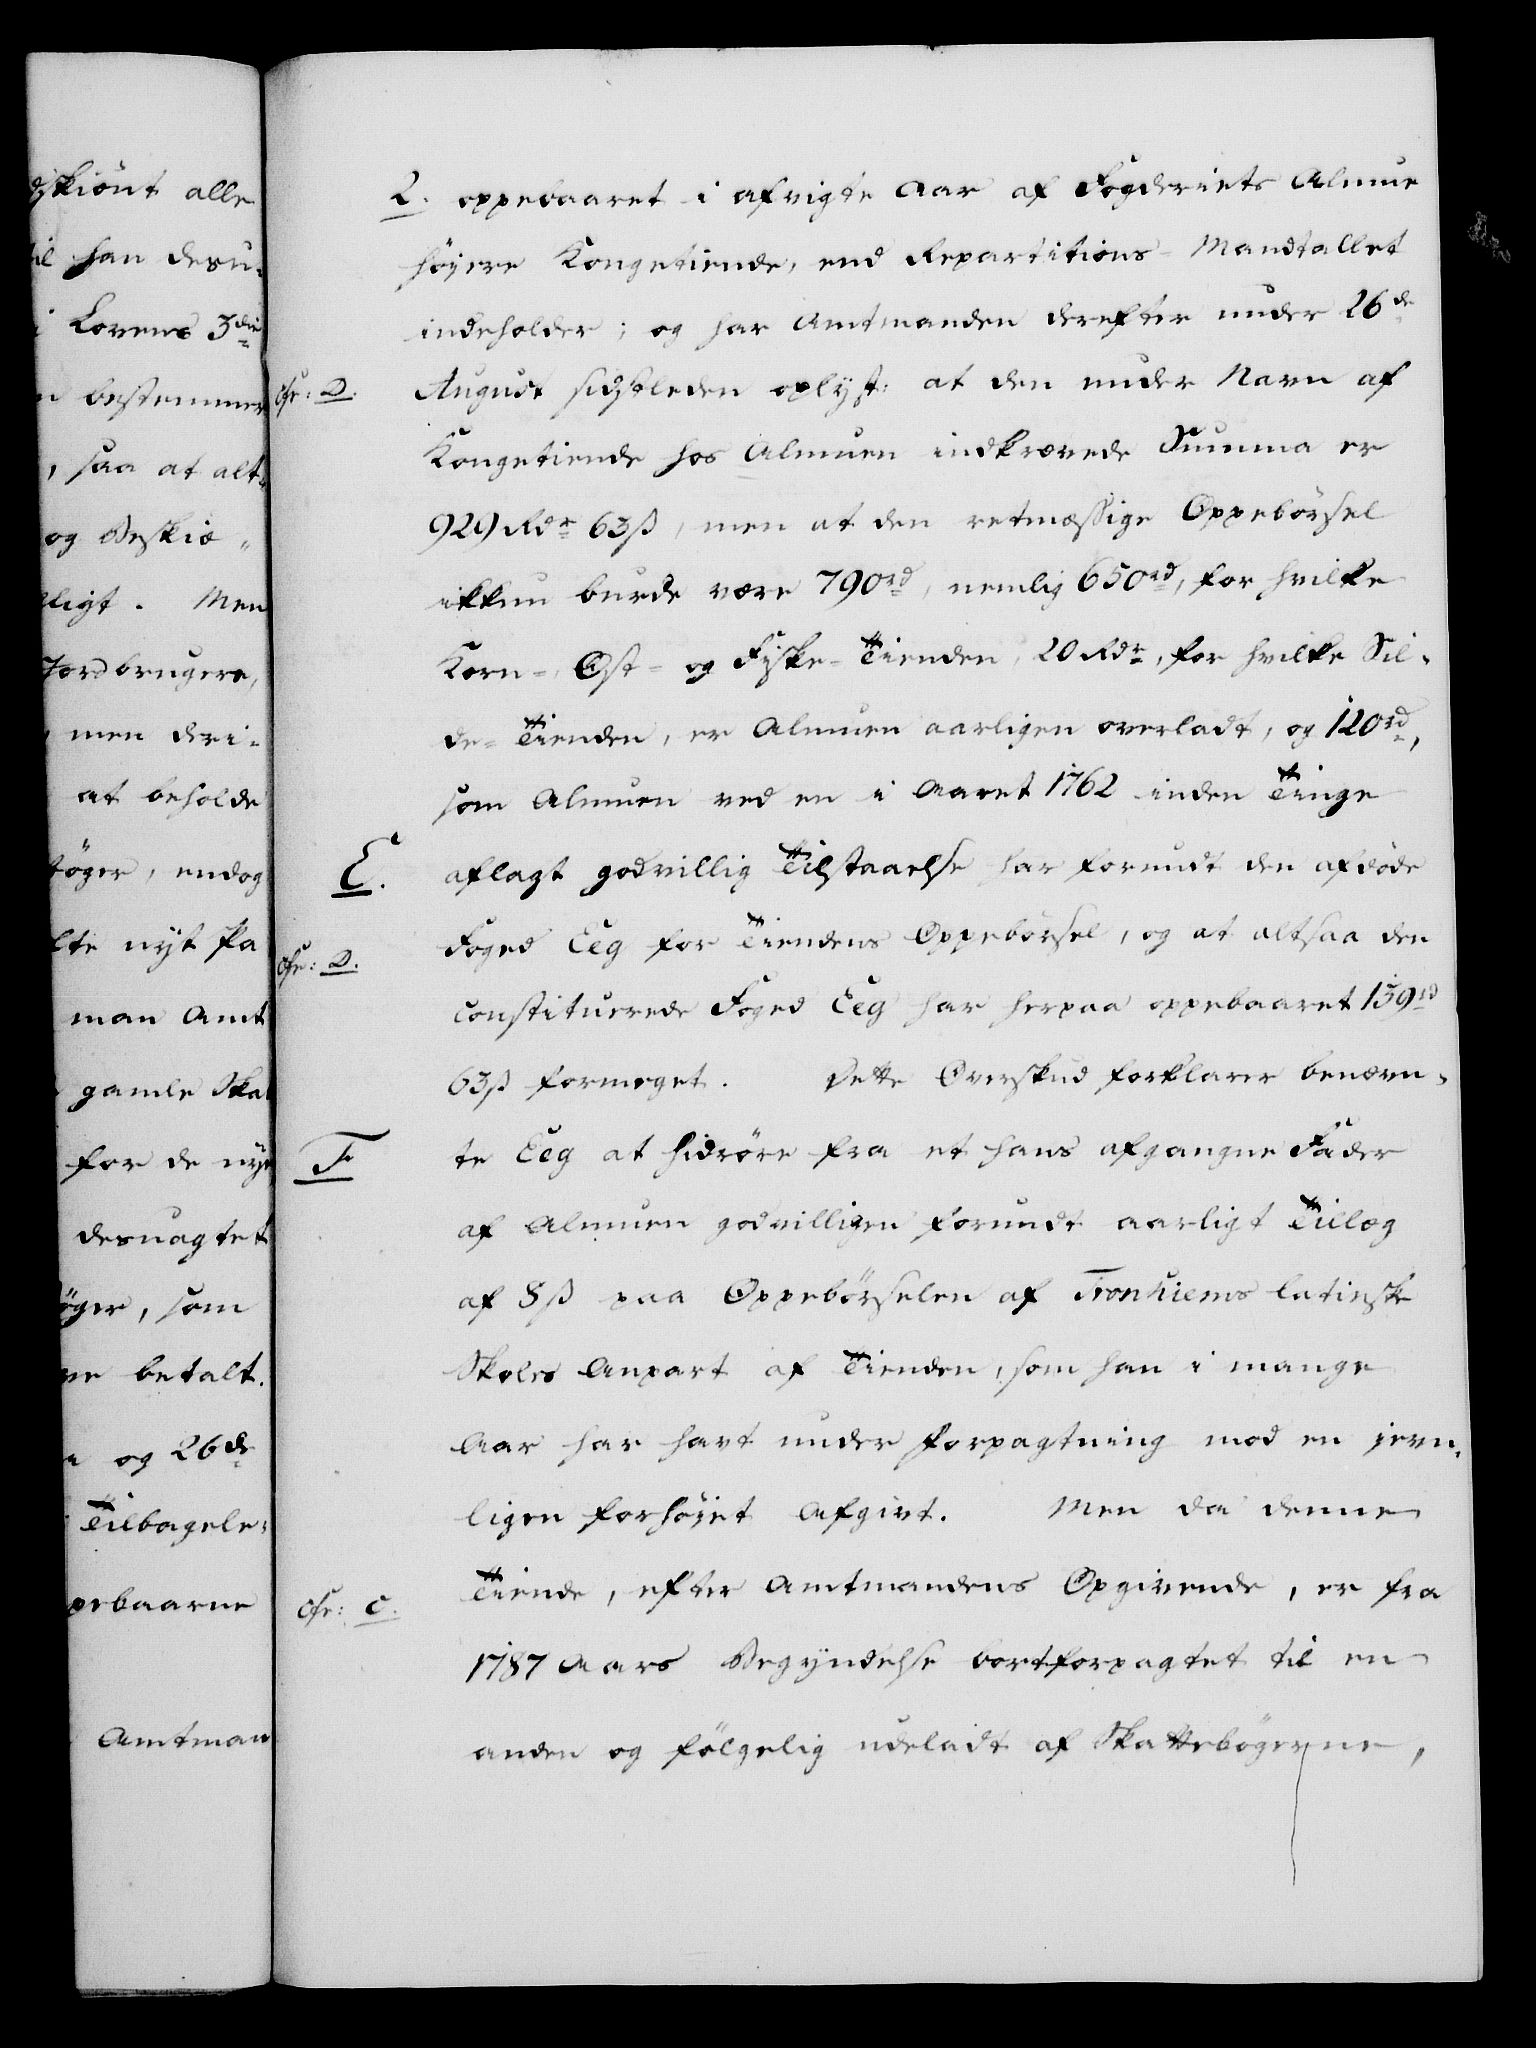 dskiönt alle
til han desu-
i Lovens 3die
n bestemmer
, saa at alt-
og Beskie-
ligt. Men
Jordbrugere,
men deri-
at beholde
töger, endog
lte nyt Ska
man Amt
gamle Skat
for de nye
desuagtet
öger, som
re betalt.
og 26de
Tilbagele-
pebaarne
Amtman
2. oppebaaret i afvigte Aar af Fogderiets Almue
höjere Kongetiende, end Repartitions-Mandtallet
indeholder; og har Amtmanden derefter under 26de
cfr: D. August sidstleden oplyst: at den under Navn af
Kongetiende hos Almuen indkrævede Summa er
929 Rdr 63ß, men at den retmæssige Oppebörsel
ikkun burde være 790rd, nemlig 650rd, for hvilke
Korn-, Ost- og Fiske-Tienden, 20 Rdr, for hvilke Sil-
de-Tienden, er Almuen aarligen overladt, og 120rd,
som Almuen ved en i Aaret 1762 inden Tinge
E. aflagt godvillig Tilstaaelse har forundt den afdöde
cfr: D. Foged Eeg for Tiendens Oppebörsel, og at altsaa den
constituerede Foged Eeg har herpaa oppebaaret 139rd
63ß formeget. Dette Overskud forklarer benævn-
F te Eeg at hidröre fra et hans afgangne Fader
af Almuen godvilligen forundt aarligt Tillæg
af 8ß paa Oppebörselen af Tronhiems latinske
Skoles Anpart af Tienden, som han i mange
Aar har havt under Forpagtning mod en jevn-
ligen forhöjet Afgivt. Men da denne
cfr: C. Tiende, efter Amtmandens Opgivende, er fra
1787 Aars Begyndelse bortforpagtet til en
anden og fölgelig udeladt af Skattebögerne,